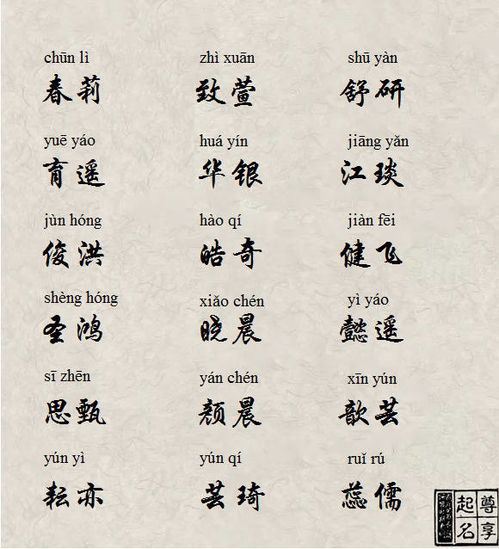 chūn lì zhì xuān shū yàn
春莉 致萱 舒研
yuē yáo huá yín jiāng yǎn
育遥 华银 江琰
jùn hóng hào qí jiàn fēi
俊洪 皓奇 健飞
shèng hóng xiǎo chén yì yáo
圣鸿 晓晨 懿遥
sī zhēn yán chén xīn yún
思甄 颜晨 歆芸
yún yì yún qí ruǐ rú
耘亦 芸琦 蕊儒
尊享
起名